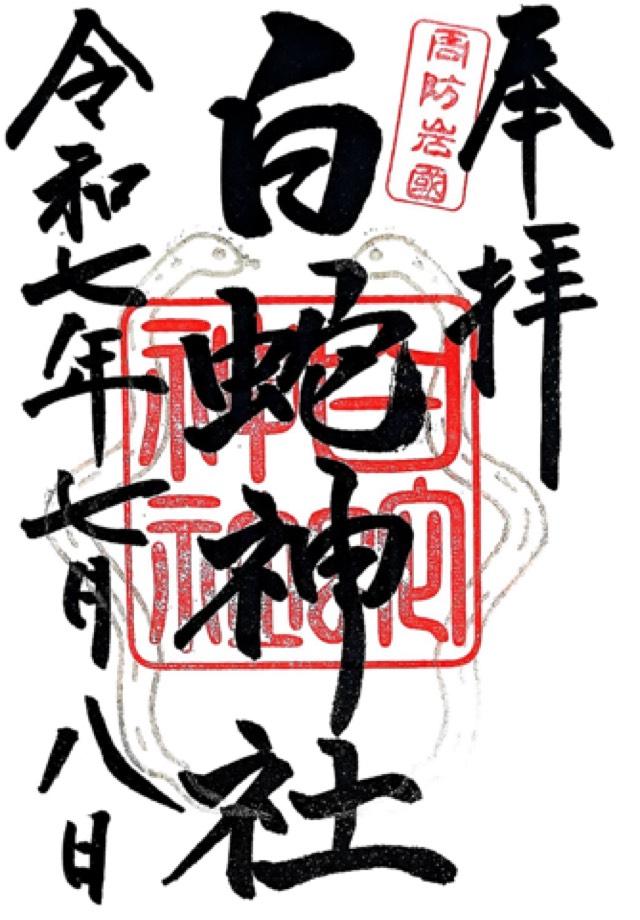 奉拝
周防岩國
白蛇神社
白蛇
神社
令和七年七月八日